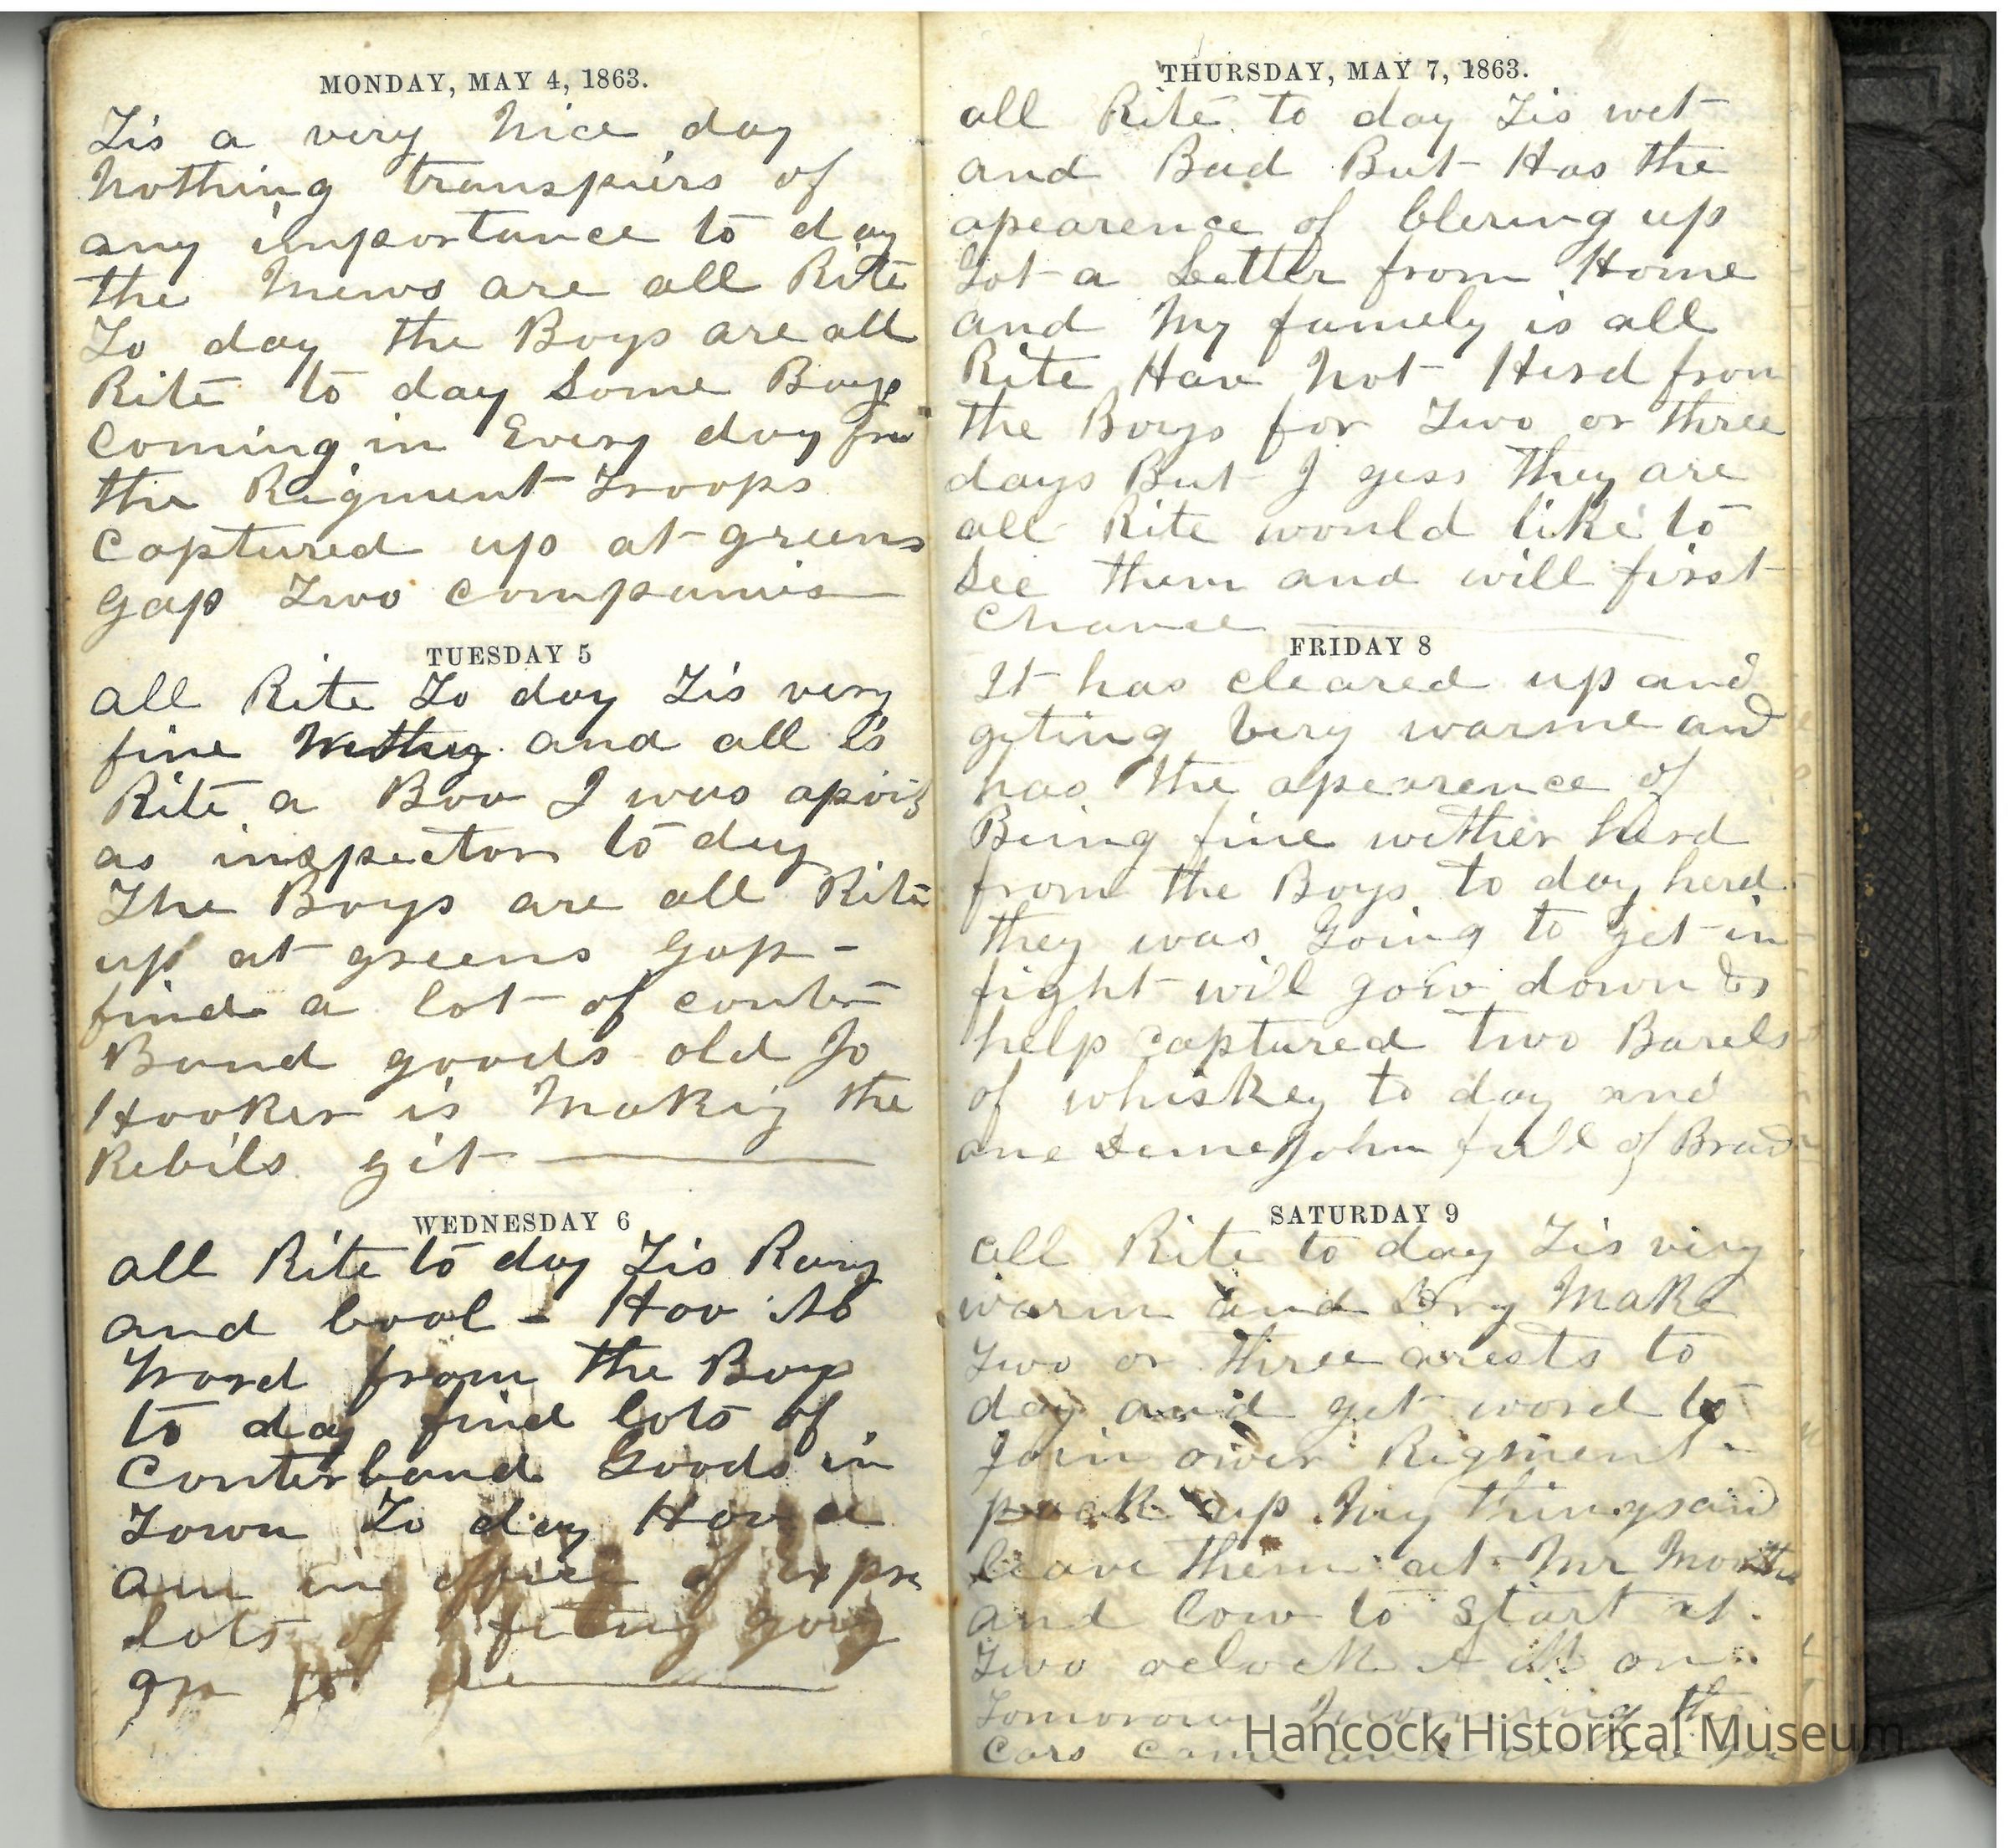 MONDAY, MAY 4, 1863.
Tis a very Nice day
Nothing transpiers of
any importance to day
the News are all Rite
To day the Boys are all
Rite to day Some Boys
Coming in Every day
the Rigment Troops
Captured up at greens
gap Two Companies
TUESDAY 5
all Rite To day Tis very
fine and all is
Rite a Boo I was
as inspector to day
The Boys are all Rite
up at greens gap -
find a lot of conter
Band goods old Jo
Hooker is Making the
Rebils git
WEDNESDAY 6
all Rite to day Tis Rany
and Cool - Hav No
Word from the Boys
to day find lots of
Conterband Goods in
Town To day Hav a
am in office of Expre
lots of fiting going
on
THURSDAY, MAY 7, 1863.
all Rite to day Tis wet
and Bad But Has the
apearence of clering up
Got a Letter from Home
and My family is all
Rite Hav Not Herd from
the Boys for Two or three
days But I gess they are
all Rite would like to
See them and will first
Chance
FRIDAY 8
It has cleared up and
giting very warme and
has the apearence of
Being fine wether herd
from the Boys to day herd
they was Going to get in
fight will gow down &
help captured two Barels
of whiskey to day and
one Demejohn full of Brand
SATURDAY 9
all Rite to day Tis very
warm and Dry Make
Two or three arests to
day and get word to
Join ower Rigment -
pack up My things and
leave them at Mr
and Cow to Start at
Two oclock A M on
Tomorow Morning the
Cars Came and
Hancock Historical Museum